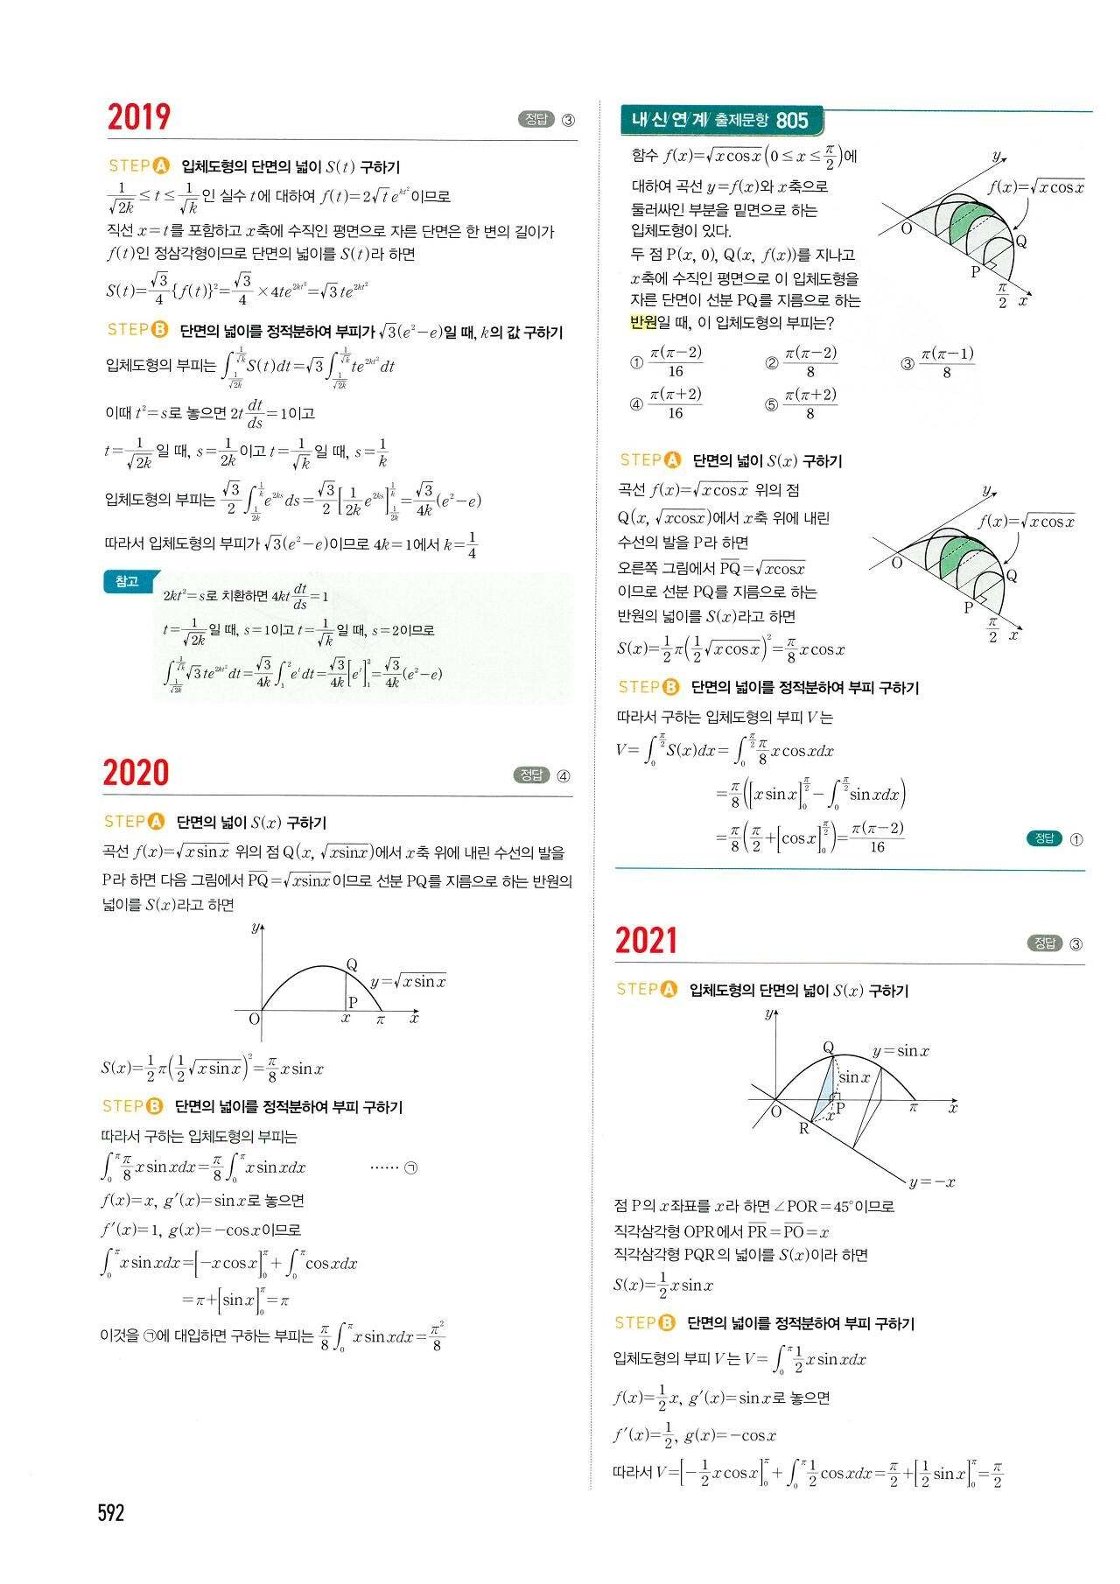 2019
정답 ③
STEP A 입체도형의 단면의 넓이 S(t) 구하기
1/√2k ≤ t ≤ 1/√k 인 실수 t에 대하여 f(t)=2√t e^{kt²}이므로
직선 x=t를 포함하고 x축에 수직인 평면으로 자른 단면은 한 변의 길이가
f(t)인 정삼각형이므로 단면의 넓이를 S(t)라 하면
S(t)=√3/4{f(t)}²=√3/4×4te^{2kt²}=√3te^{2kt²}
STEP B 단면의 넓이를 정적분하여 부피가 √3(e²−e)일 때, k의 값 구하기
입체도형의 부피는 ∫_{1/√2k}^{1/√k} S(t)dt=√3∫_{1/√2k}^{1/√k} te^{2kt²}dt
이때 t²=s로 놓으면 2t dt/ds=1이고
t=1/√2k 일 때, s=1/2k이고 t=1/√k 일 때, s=1/k
입체도형의 부피는 √3/2∫_{1/2k}^{1/k} e^{2ks}ds=√3/2[1/2k e^{2ks}]_{1/2k}^{1/k}=√3/4k(e²−e)
따라서 입체도형의 부피가 √3(e²−e)이므로 4k=1에서 k=1/4
참고
2kt²=s로 치환하면 4kt dt/ds=1
t=1/√2k 일 때, s=1이고 t=1/√k 일 때, s=2이므로
∫_{1/√2k}^{1/√k} √3te^{2kt²}dt=√3/4k∫_1^2 e^t dt=√3/4k[e^t]_1^2=√3/4k(e²−e)
2020
정답 ④
STEP A 단면의 넓이 S(x) 구하기
곡선 f(x)=√(x sin x) 위의 점 Q(x, √(xsinx))에서 x축 위에 내린 수선의 발을
P라 하면 다음 그림에서 PQ=√(xsinx)이므로 선분 PQ를 지름으로 하는 반원의
넓이를 S(x)라고 하면
y
Q
y=√(x sin x)
P
O
x
π
x
S(x)=1/2π(1/2√(x sin x))²=π/8 x sin x
STEP B 단면의 넓이를 정적분하여 부피 구하기
따라서 구하는 입체도형의 부피는
∫_0^π π/8 x sin xdx=π/8∫_0^π x sin xdx …… ㉠
f(x)=x, g′(x)=sin x로 놓으면
f′(x)=1, g(x)=−cos x이므로
∫_0^π x sin xdx=[−x cos x]_0^π+∫_0^π cos xdx
=π+[sin x]_0^π=π
이것을 ㉠에 대입하면 구하는 부피는 π/8∫_0^π x sin xdx=π²/8
592
내신연계 출제문항 805
함수 f(x)=√(x cos x)(0≤x≤π/2)에
대하여 곡선 y=f(x)와 x축으로
둘러싸인 부분을 밑면으로 하는
입체도형이 있다.
두 점 P(x, 0), Q(x, f(x))를 지나고
x축에 수직인 평면으로 이 입체도형을
자른 단면이 선분 PQ를 지름으로 하는
반원일 때, 이 입체도형의 부피는?
y
f(x)=√(x cos x)
O
Q
P
π/2
x
① π(π−2)/16
② π(π−2)/8
③ π(π−1)/8
④ π(π+2)/16
⑤ π(π+2)/8
STEP A 단면의 넓이 S(x) 구하기
곡선 f(x)=√(x cos x) 위의 점
Q(x, √(xcosx))에서 x축 위에 내린
수선의 발을 P라 하면
오른쪽 그림에서 PQ=√(xcosx)
이므로 선분 PQ를 지름으로 하는
반원의 넓이를 S(x)라고 하면
y
f(x)=√(x cos x)
O
Q
P
π/2
x
S(x)=1/2π(1/2√(x cos x))²=π/8 x cos x
STEP B 단면의 넓이를 정적분하여 부피 구하기
따라서 구하는 입체도형의 부피 V는
V=∫_0^{π/2} S(x)dx=∫_0^{π/2} π/8 x cos xdx
=π/8([x sin x]_0^{π/2}−∫_0^{π/2} sin xdx)
=π/8(π/2+[cos x]_0^{π/2})=π(π−2)/16
정답 ①
2021
정답 ③
STEP A 입체도형의 단면의 넓이 S(x) 구하기
y
Q
y=sin x
sin x
O
P
π
x
x
R
y=−x
점 P의 x좌표를 x라 하면 ∠POR=45°이므로
직각삼각형 OPR에서 PR=PO=x
직각삼각형 PQR의 넓이를 S(x)이라 하면
S(x)=1/2 x sin x
STEP B 단면의 넓이를 정적분하여 부피 구하기
입체도형의 부피 V는 V=∫_0^π 1/2 x sin xdx
f(x)=1/2x, g′(x)=sin x로 놓으면
f′(x)=1/2, g(x)=−cos x
따라서 V=[−1/2 x cos x]_0^π+∫_0^π 1/2 cos xdx=π/2+[1/2 sin x]_0^π=π/2